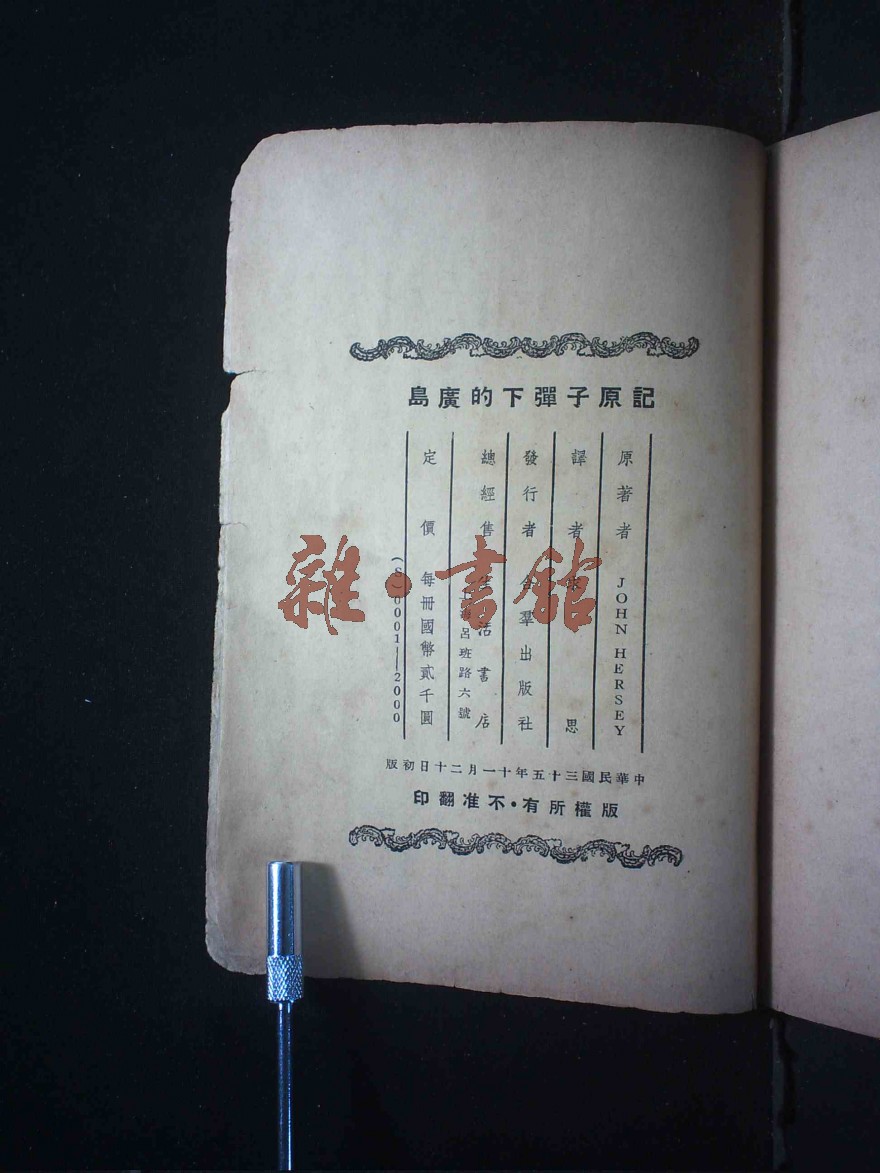 記原子彈下的廣島
原著者 JOHN HERSEY
譯者 求思
發行者 合羣出版社
總經售 生活書店
上海呂班路六號
定價 每冊國幣貳千圓
(S.)0001—2000
中華民國三十五年十一月二十日初版
版權所有・不准翻印
雜・書館